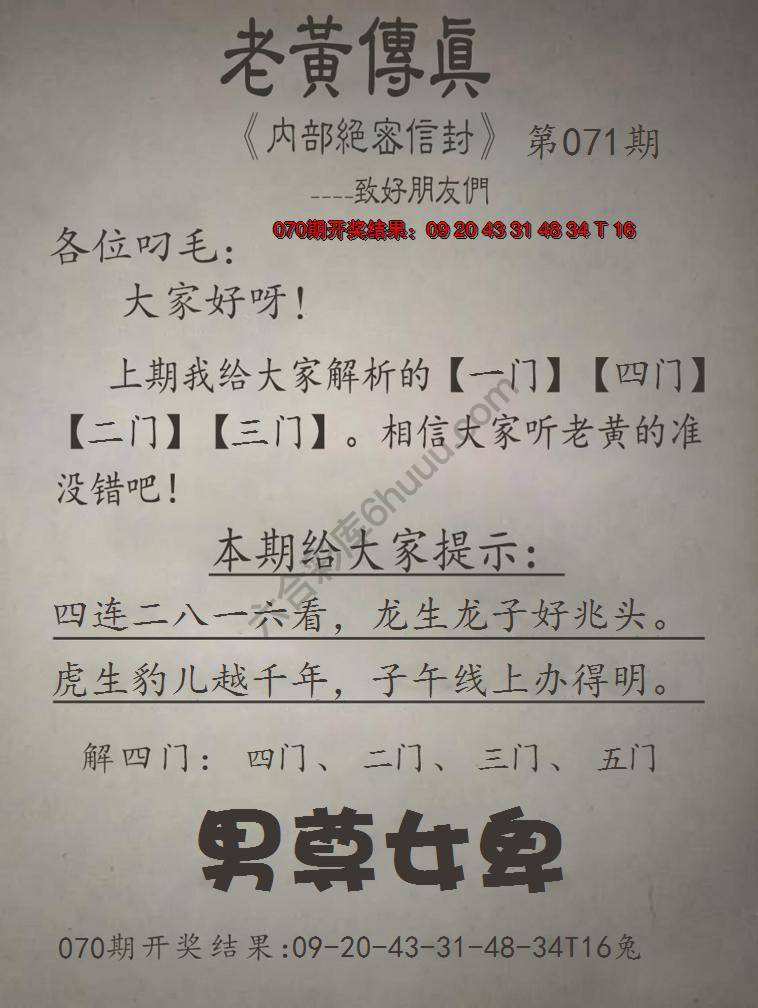 老黃傳眞
《内部絕密信封》 第071期
----致好朋友們
070期开奖结果：09 20 43 31 48 34 T 16
各位叼毛：
大家好呀！
上期我给大家解析的【一门】【四门】
【二门】【三门】。相信大家听老黄的准
没错吧！
本期给大家提示：
四连二八一六看，龙生龙子好兆头。
虎生豹儿越千年，子午线上办得明。
解四门： 四门、 二门、 三门、 五门
男尊女卑
070期开奖结果:09-20-43-31-48-34T16兔
六合彩库6huuu.com